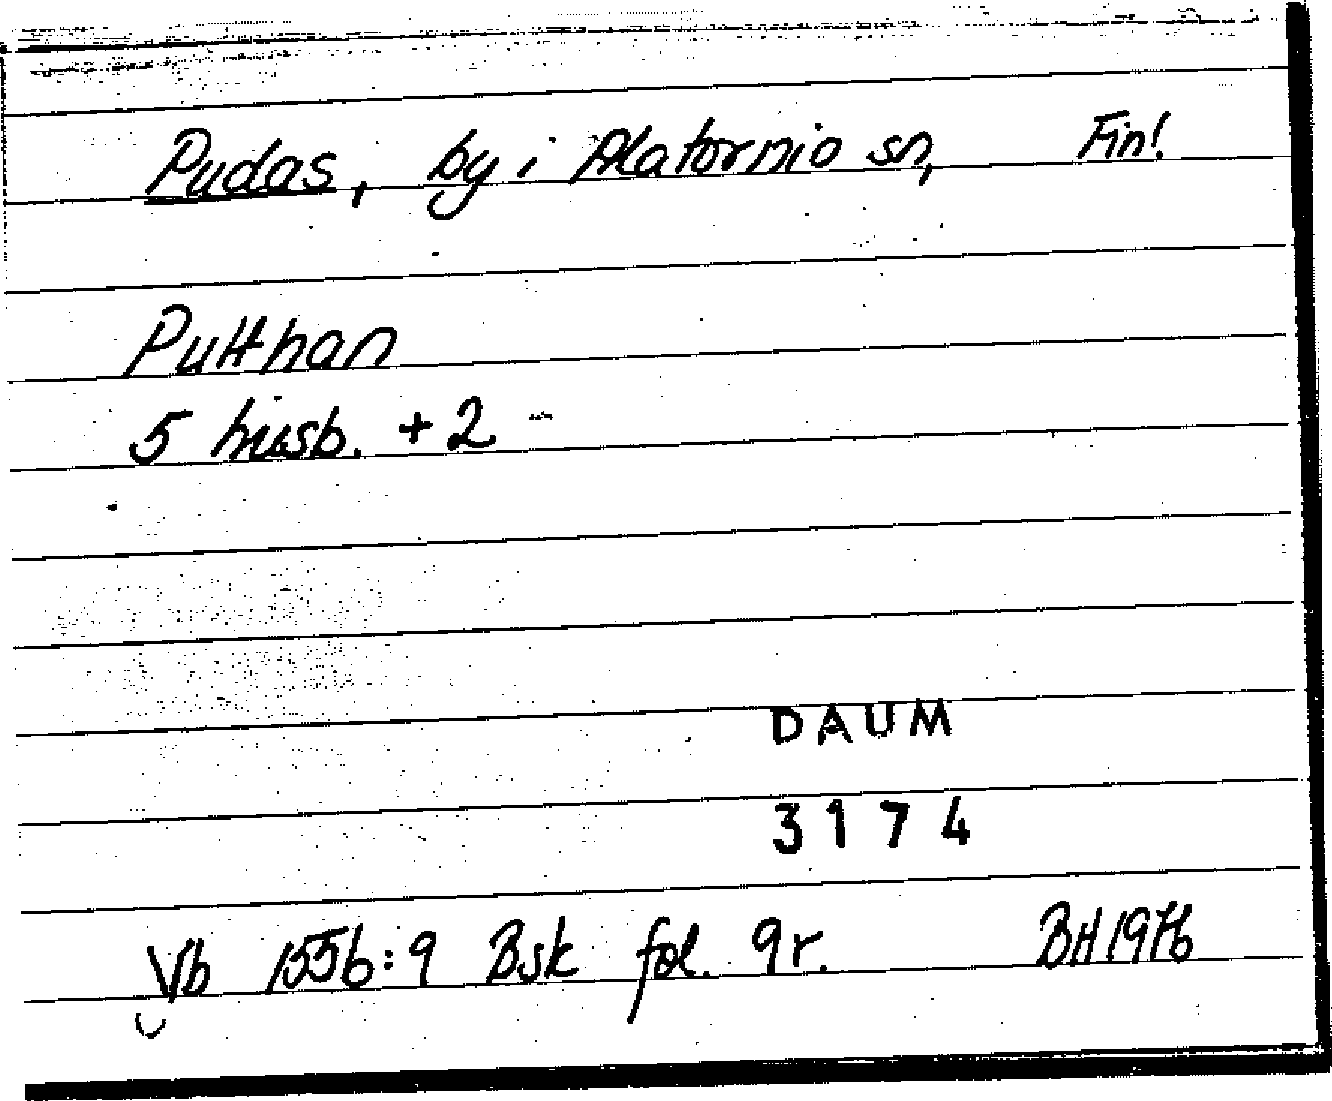 Pudas, by i Alatornio sn, Finl.
Putthan
5 husb. + 2 –
DAUM
3174
Vb 1556:9 Bsk fol. 9r. BH 1976